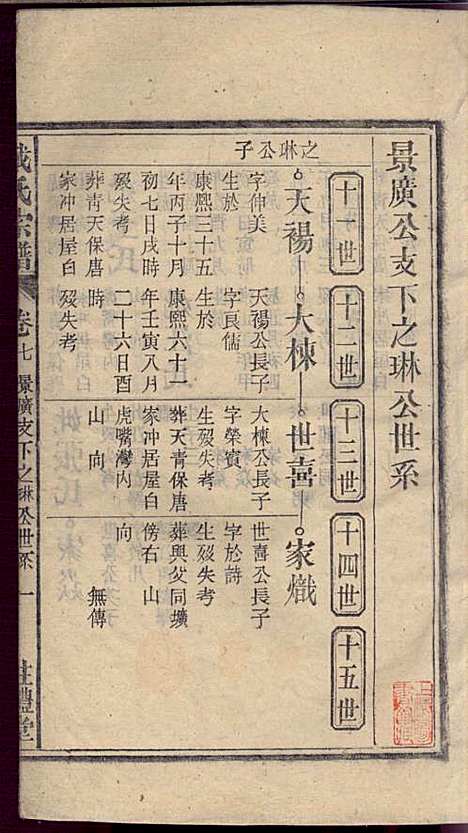 景廣公支下之琳公世系
十一世
十二世
十三世
十四世
十五世
之琳公子
天禓
大棟
世喜
家熾
字伸美
生於
康熙三十五
年丙子十月
初七日戌時
歿失考
葬青天保唐
家冲居屋白
天禓公長子
字良儒
生於
康熙六十一
年壬寅八月
二十六日酉
時
歿失考
大棟公長子
字榮賓
生歿失考
葬天青保唐
家冲居屋白
虎嘴灣內
山 向
世喜公長子
字於詩
生歿失考
葬與父同壙
傍右 山
向
無傳
氏宗譜
卷七
景廣支下之琳公世系
一
禮堂